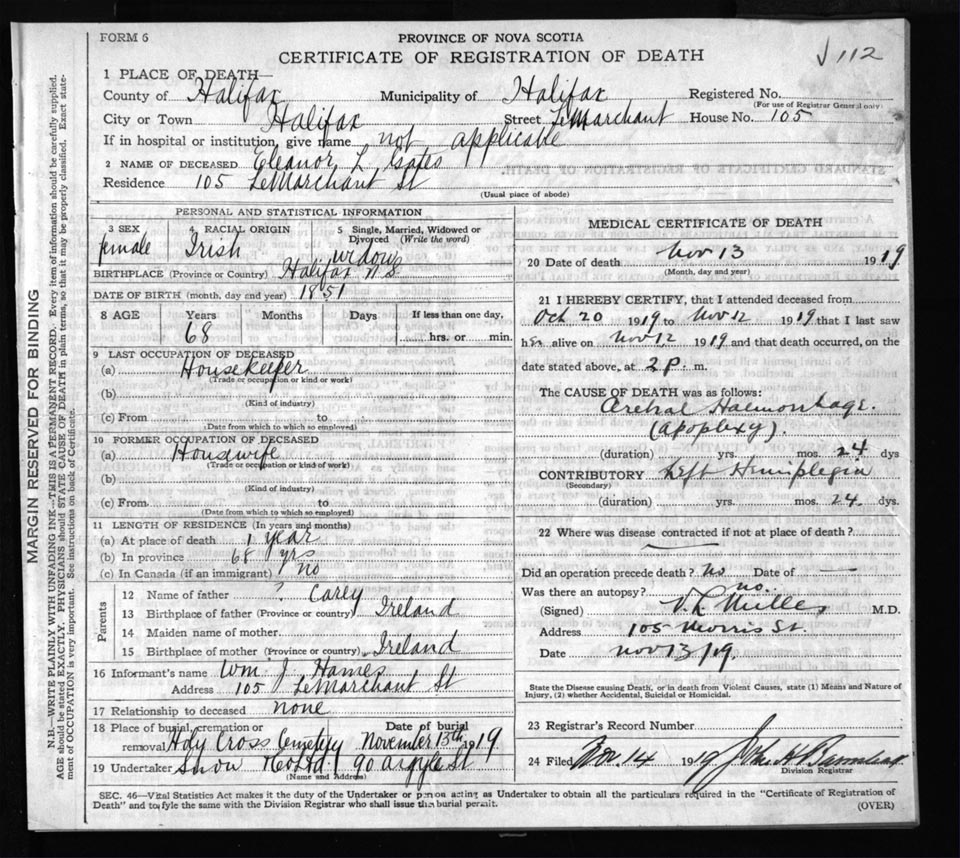 FORM 6
PROVINCE OF NOVA SCOTIA
CERTIFICATE OF REGISTRATION OF DEATH
112
1 PLACE OF DEATH—
County of Halifax Municipality of Halifax Registered No.
(For use of Registrar General only)
City or Town Halifax Street LeMarchant House No. 105
If in hospital or institution, give name not applicable
2 NAME OF DECEASED Eleanor L Gates
Residence 105 LeMarchant St
(Usual place of abode)
PERSONAL AND STATISTICAL INFORMATION
3 SEX 4 RACIAL ORIGIN 5 Single, Married, Widowed or Divorced (Write the word)
female Irish widow
BIRTHPLACE (Province or Country) Halifax N S
DATE OF BIRTH (month, day and year) 1851
8 AGE Years Months Days If less than one day,
68 hrs. or min.
9 LAST OCCUPATION OF DECEASED
(a) Housekeeper
(Trade or occupation or kind of work)
(b)
(Kind of industry)
(c) From to
(Date from which to so employed)
10 FORMER OCCUPATION OF DECEASED
(a) Housewife
(Trade or occupation or kind of work)
(b)
(Kind of industry)
(c) From to
(Date from which to so employed)
11 LENGTH OF RESIDENCE (In years and months)
(a) At place of death 1 year
(b) In province 68 yrs
(c) In Canada (if an immigrant) no
Parents
12 Name of father ? Carey
13 Birthplace of father (Province or country) Ireland
14 Maiden name of mother
15 Birthplace of mother (Province or country) Ireland
16 Informant's name Wm. J. Hames
Address 105 LeMarchant St
17 Relationship to deceased none
18 Place of burial, cremation or removal Holy Cross Cemetery Date of burial November 15th 1919
19 Undertaker Snow & Co Ltd. 90 Argyle St
(Name and Address)
MEDICAL CERTIFICATE OF DEATH
20 Date of death Nov 13 1919
(Month, day and year)
21 I HEREBY CERTIFY, that I attended deceased from
Oct 20 1919 to Nov 12 1919 that I last saw
her alive on Nov 12 1919 and that death occurred, on the
date stated above, at 2 P. m.
The CAUSE OF DEATH was as follows:
Cerebral Haemorrhage.
(Apoplexy).
(duration) yrs. mos. 24 dys
CONTRIBUTORY Left Hemiplegia
(Secondary)
(duration) yrs. mos. 24 dys.
22 Where was disease contracted if not at place of death?
Did an operation precede death? No Date of —
Was there an autopsy? no.
(Signed) V. L. Miller M.D.
Address 105 Morris St.
Date Nov 13/19.
State the Disease causing Death, or in death from Violent Causes, state (1) Means and Nature of
Injury, (2) whether Accidental, Suicidal or Homicidal.
23 Registrar's Record Number
24 Filed Nov. 14 1919 John H
Division Registrar
SEC. 46—Vital Statistics Act makes it the duty of the Undertaker or person acting as Undertaker to obtain all the particulars required in the "Certificate of Registration of
Death" and to fyle the same with the Division Registrar who shall issue the burial permit.
(OVER)
MARGIN RESERVED FOR BINDING
N.B.—WRITE PLAINLY WITH UNFADING INK—THIS IS A PERMANENT RECORD. Every item of information should be carefully supplied.
AGE should be stated EXACTLY. PHYSICIANS should STATE CAUSE OF DEATH in plain terms, so that it may be properly classified. Exact state-
ment of OCCUPATION is very important. See instructions on back of Certificate.